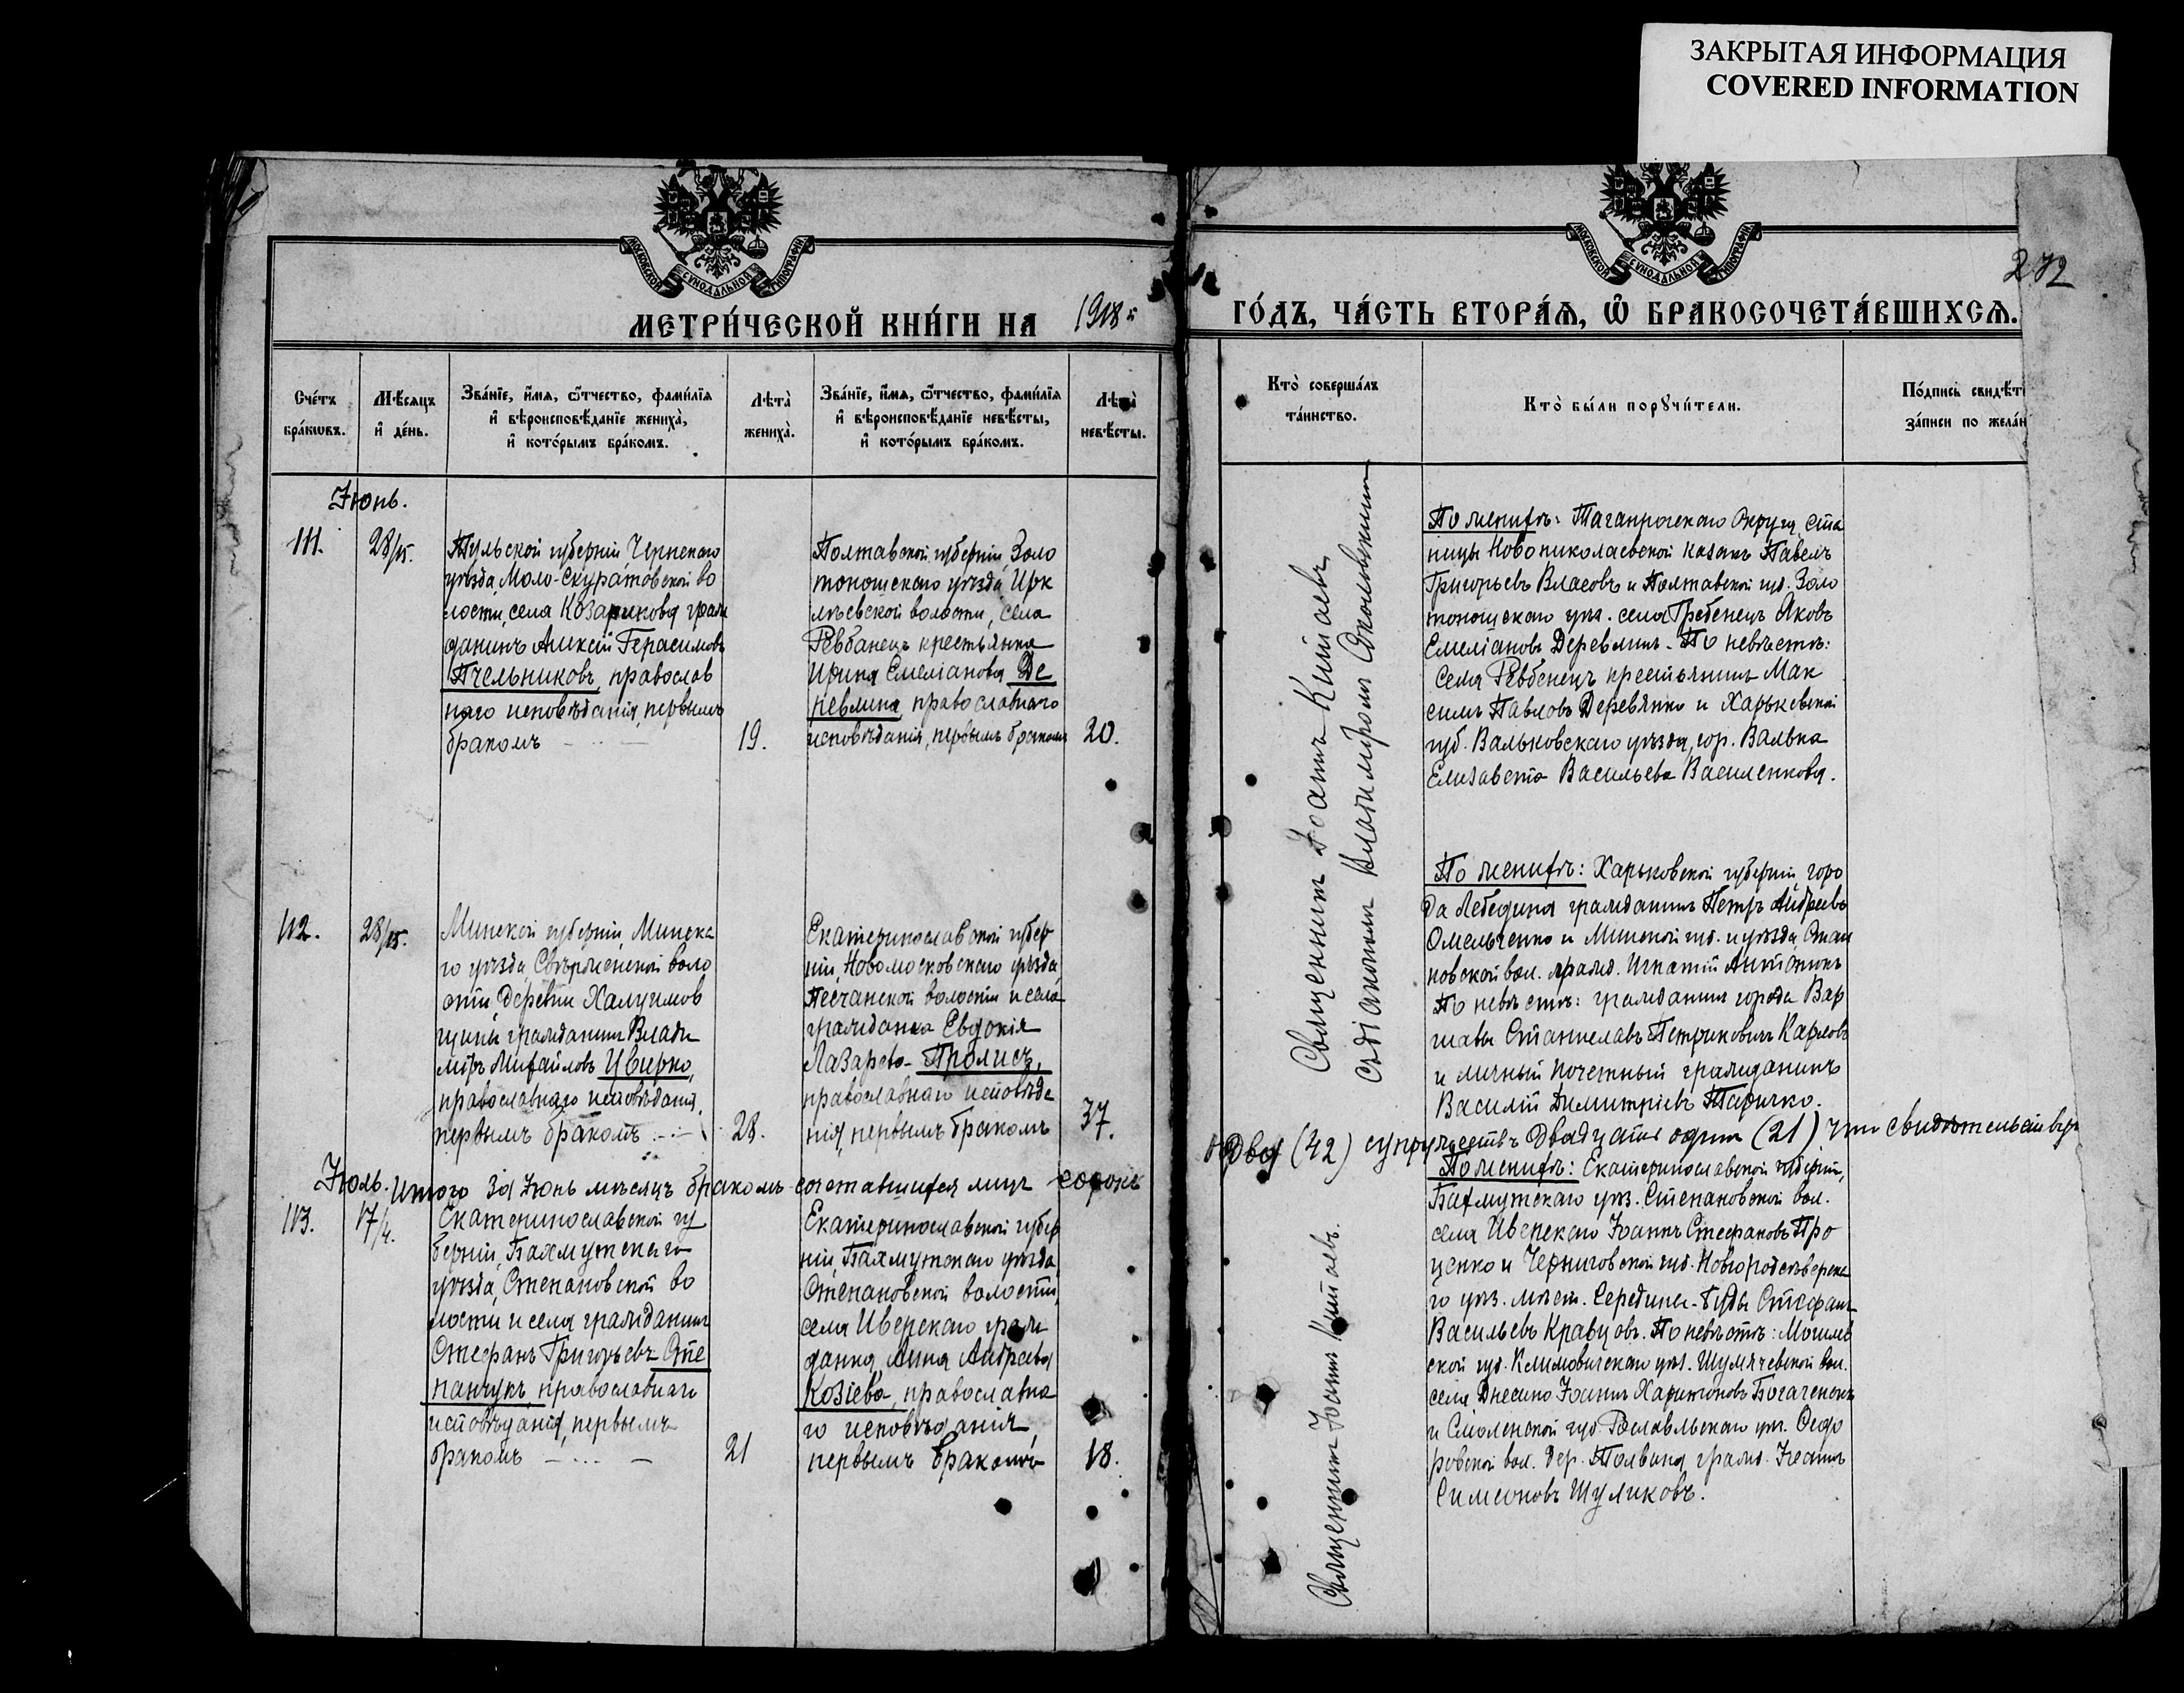 ЗАКРЫТАЯ ИНФОРМАЦИЯ
COVERED INFORMATION
МОСКОВСКОЙ СѴНОДАЛЬНОЙ ТИПОГРАФІИ
МОСКОВСКОЙ СѴНОДАЛЬНОЙ ТИПОГРАФІИ
272
МЕТРИ́ЧЕСКОЙ КНИ́ГИ НА 1918 й
ГО́ДЪ, ЧА́СТЬ ВТОРА́Ѧ, Ѡ БРАКОСОЧЕТА́ВШИХСѦ.
Сче́тъ
бра́кѡвъ.
Мѣ́сяцъ
и҆ де́нь.
Зва́нїе, и҆́мѧ, ѻ҆́тчество, фами́лїѧ
и҆ вѣроисповѣ́данїе жениха̀,
и҆ кото́рымъ бра́комъ.
Лѣта̀
жениха̀.
Зва́нїе, и҆́мѧ, ѻ҆́тчество, фами́лїѧ
и҆ вѣроисповѣ́данїе невѣ́сты,
и҆ кото́рымъ бра́комъ.
Лѣта̀
невѣ́сты.
Кто̀ соверша́лъ
та́инство.
Кто̀ бы́ли порꙋчи́тели.
По́дпись свидѣ́т
за́писи по жела́н
Іюнь.
111.
28/15.
Тульской губерніи Чернскаго
уѣзда, Мало-Скуратовской во
лости, села Козарикова граж
данинъ Алексій Герасимовъ
Пчельниковъ, православ
наго исповѣданія, первымъ
бракомъ
19.
Полтавской губерніи, Золо
тоношскаго уѣзда, Ирк
лѣевской волости, села
Ревбанецъ крестьянка
Ирина Емеліанова Де
ревлина, православнаго
исповѣданія, первымъ бракомъ
20.
Священникъ Іоаннъ Китаевъ
съ діакономъ Владиміромъ Сокольскимъ
По женихѣ: Таганрогскаго Округа, ста
ницы Новониколаевской казакъ Павелъ
Григорьевъ Власовъ и Полтавской губ. Золо
тоношскаго уѣз. села Гребенецъ Яковъ
Емеліановъ Деревлинъ. По невѣстѣ:
Села Ревбенецъ крестьянинъ Мак
симъ Павловъ Деревянко и Харьковской
губ. Вальковскаго уѣзда, гор. Валька
Елизавета Васильева Василенкова.
112.
28/15.
Минской губерніи, Минска
го уѣзда, Свѣрженской воло
сти, деревни Халуимов
щины гражданинъ Влади
міръ Михайловъ Цвирко,
православнаго исповѣданія,
первымъ бракомъ
28.
Екатеринославской губер
ніи, Новомосковскаго уѣзда,
Песчанской волости и села
гражданка Евдокія
Лазарева Пролисъ,
православнаго исповѣда
нія, первымъ бракомъ
37.
По женихѣ: Харьковской губерніи, горо
да Лебедина гражданинъ Петръ Андреевъ
Омельченко и Минской губ. и уѣзда, Стан
ковской вол. гражд. Игнатій Антонюкъ
По невѣстѣ: гражданинъ города Вар
шавы Станиславъ Петриковичъ Карловъ
и личный почетный гражданинъ
Василій Димитріевъ Таричко.
Іюль.
Итого за Іюнь мѣсяцъ бракомъ сочетавшихся лицъ сорокъ
два (42) супружествъ двадцать одинъ (21) что свидѣтельству
113.
17/4.
Екатеринославской гу
берніи, Бахмутскаго
уѣзда, Степановской во
лости и села гражданинъ
Стефанъ Григорьевъ Сте
панчукъ, православнаго
исповѣданія, первымъ
бракомъ
21
Екатеринославской губер
ніи, Бахмутскаго уѣзда,
Степановской волости,
села Иверскаго граж
данка Анна Андреева
Козіева, православна
го исповѣданія,
первымъ бракомъ
18.
Священникъ Іоаннъ Китаевъ.
По женихѣ: Екатеринославской губерніи,
Бахмутскаго уѣз. Степановской вол.
села Иверскаго Іоаннъ Стефановъ Про
ценко и Черниговской губ. Новгородсѣверска
го уѣз. мѣст. Середина-Буды Стефанъ
Васильевъ Кравцовъ. По невѣстѣ: Могилев
ской губ. Климовичскаго уѣз. Шумячевской вол.
села Днесино Іоаннъ Харитоновъ Богаченокъ
и Смоленской губ. Рославльскаго уѣз. Ѳедо
ровской вол. дер. Полвина гражд. Іоаннъ
Симеоновъ Шуликовъ.